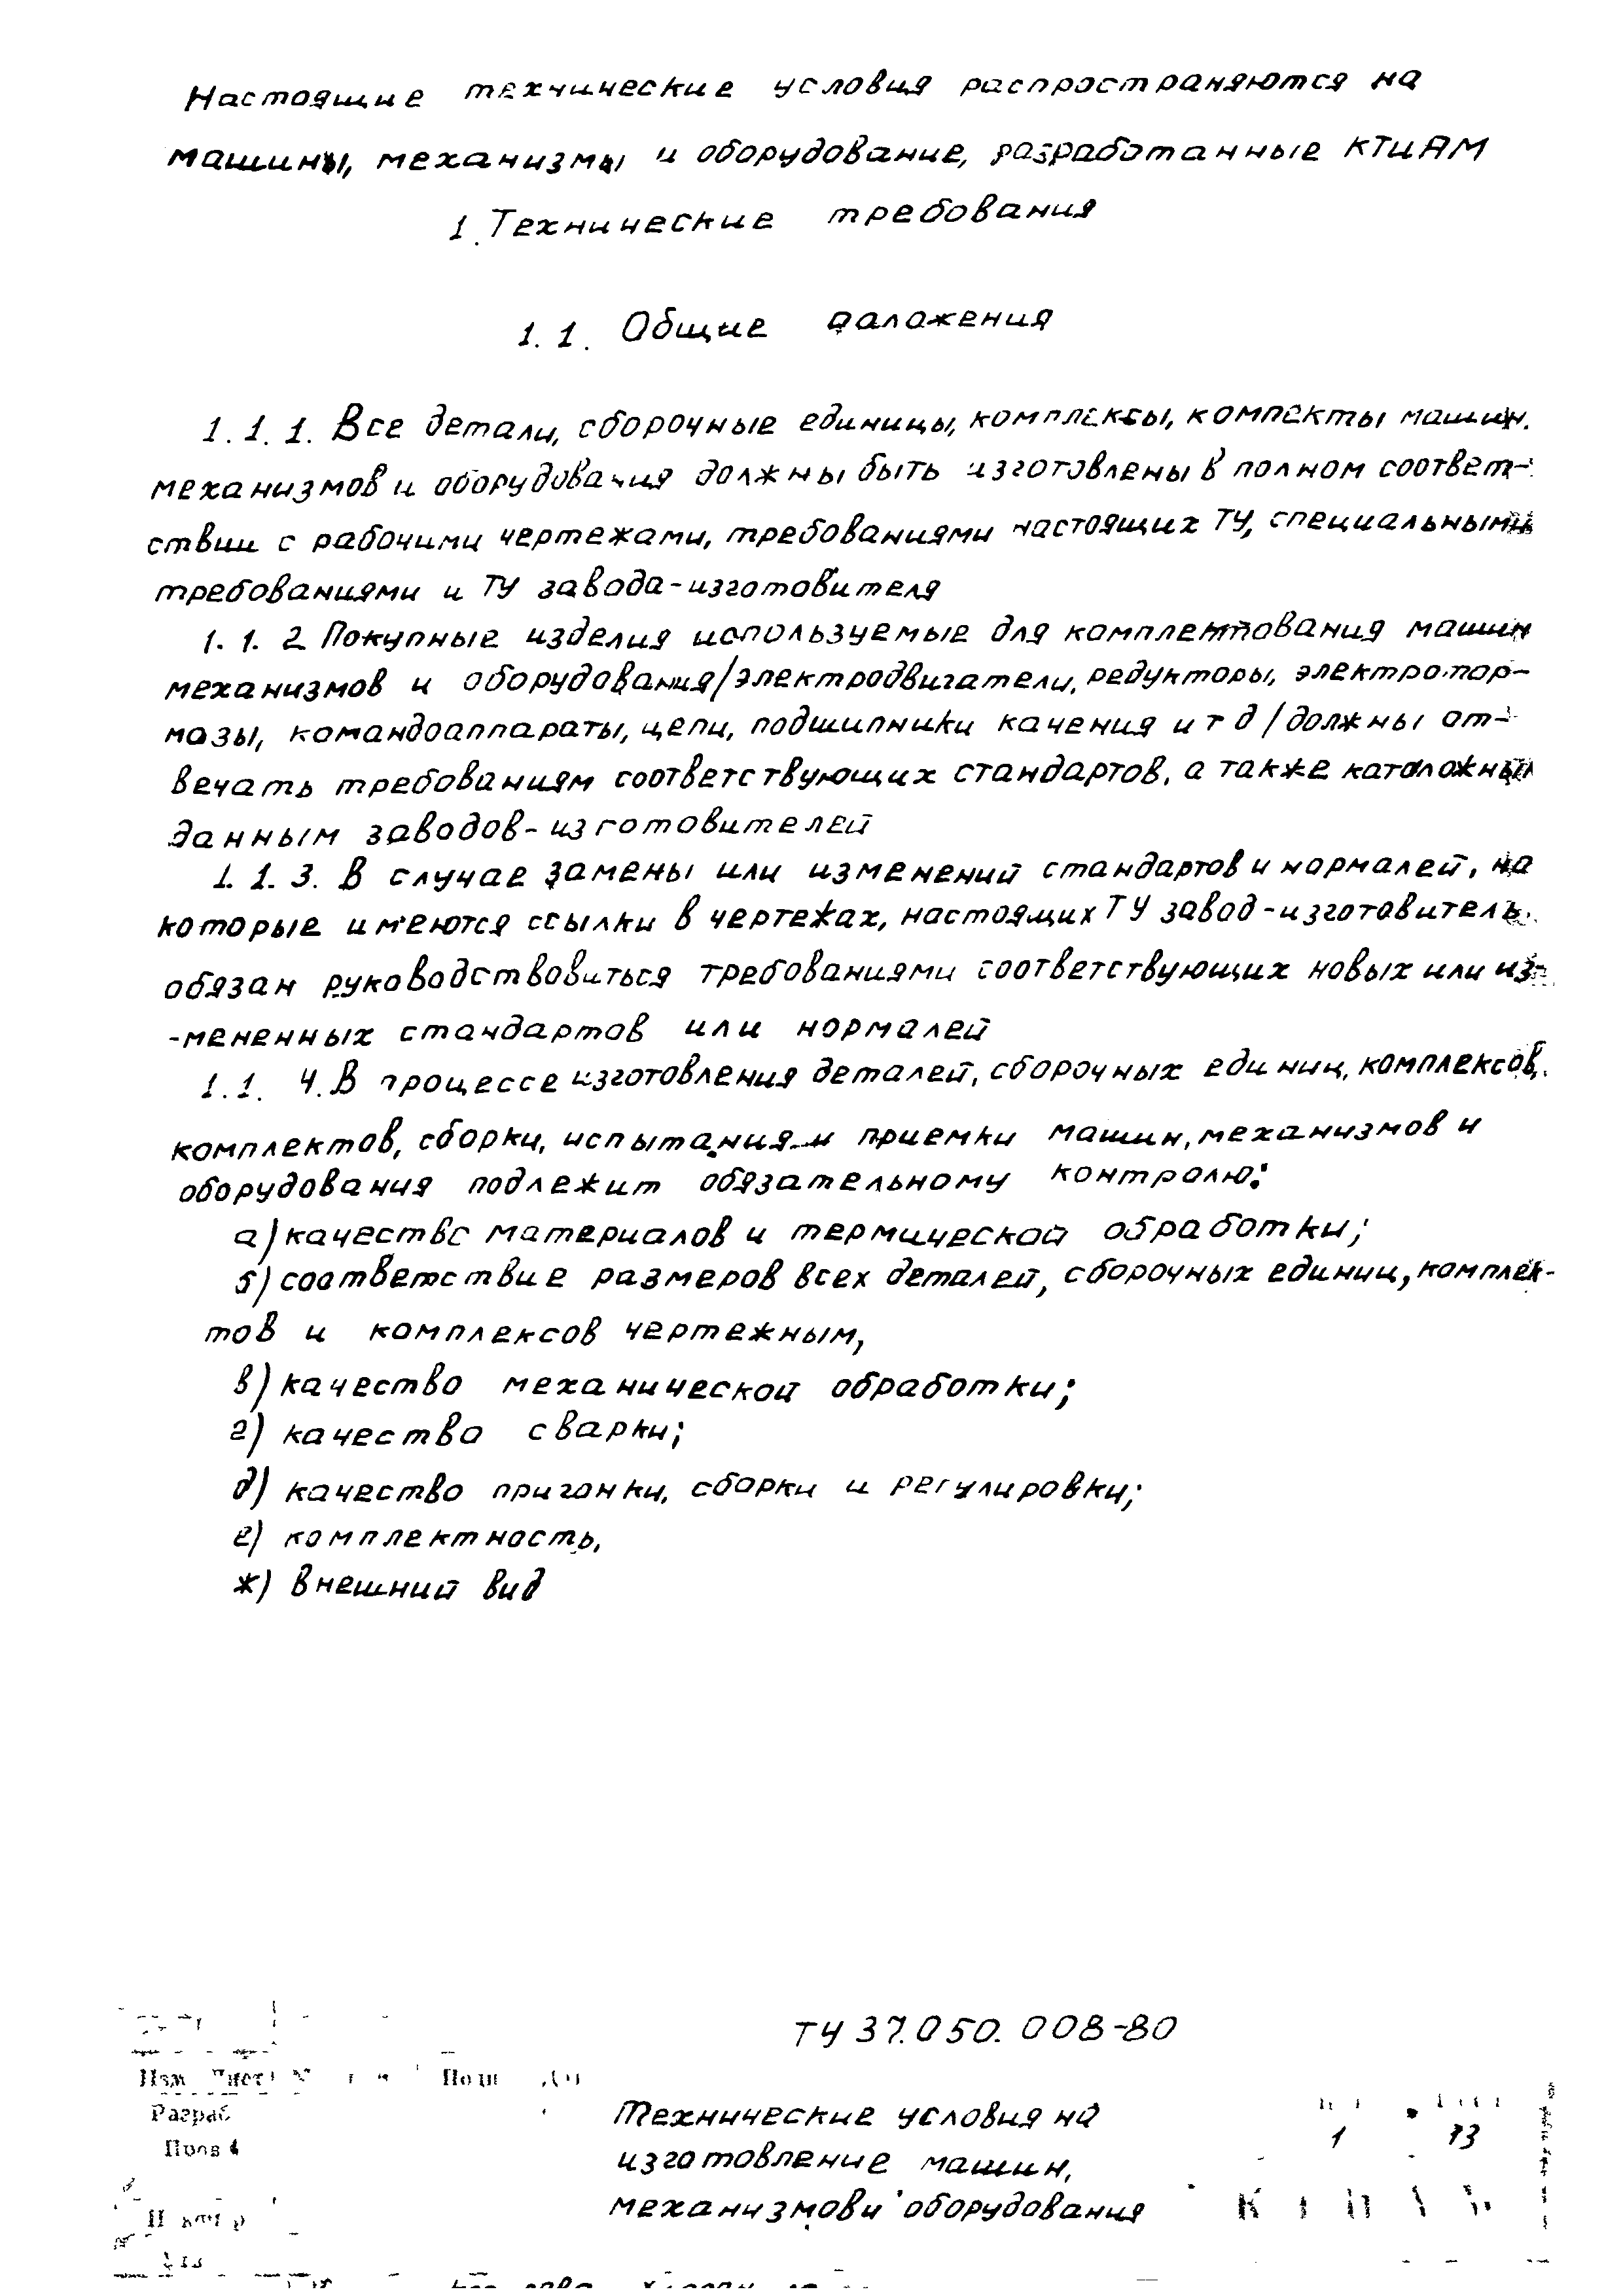 Настоящие технические условия распространяются на
машины, механизмы и оборудование, разработанные КТиАМ
1. Технические требования
1.1. Общие положения
1.1.1. Все детали, сборочные единицы, комплексы, компекты машин.
механизмов и оборудования должны быть изготовлены в полном соответ-
ствии с рабочими чертежами, требованиями настоящих ТУ, специальными
требованиями и ТУ завода-изготовителя
1.1.2 Покупные изделия используемые для комплектования машин
механизмов и оборудования/электродвигатели, редукторы, электро.тор-
мазы, командоаппараты, цепи, подшипники качения и т д / должны от-
вечать требованиям соответствующих стандартов, а также каталожным
данным заводов-изготовителей
1.1.3. В случае замены или изменений стандартов и нормалей, на
которые имеются ссылки в чертежах, настоящих ТУ завод-изготовитель.
обязан руководствовиться требованиями соответствующих новых или из-
-мененных стандартов или нормалей
1.1.4. В процессе изготовления деталей, сборочных единиц, комплексов,
комплектов, сборки, испытания и приемки машин, механизмов и
оборудования подлежит обязательному контролю:
а) качество материалов и термической обработки;
б) соответствие размеров всех деталей, сборочных единиц, комплек-
тов и комплексов чертежным,
в) качество механической обработки;
г) качество сварки;
д) качество пригонки, сборки и регулировки;
е) комплектность,
ж) внешний вид
ТУ 37.050.008-80
Изм Лист
Разраб
Технические условия на
изготовление машин,
механизмов и оборудования
1 13